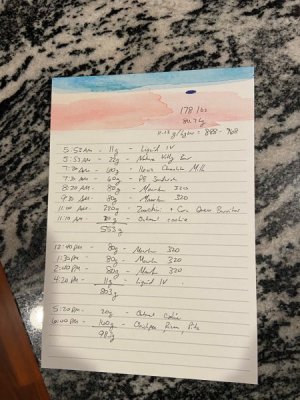 178 lbs
80.7 kg
5:52 AM - 11g - Liquid IV
5:53 AM - 25g - Nature Valley Bar
7:30 AM - - Chocolate Milk
7:30 AM - 40g - PB Sandwich
8:20 AM - 80g - Maurten 320
9:30 AM - 80g - Maurten 320
11:00 AM - 220g - Zucchini + Burritos
11:10 AM - - Oatmeal cookie
553g
12:40 PM - 80g - Maurten 320
1:30 PM - 80g - Maurten 320
2:00 PM - 80g - Maurten 320
4:20 PM - 11g - Liquid IV
803g
5:20 PM - 20g - Oatmeal Cookie
6:00 PM - 160g - Pita
983g